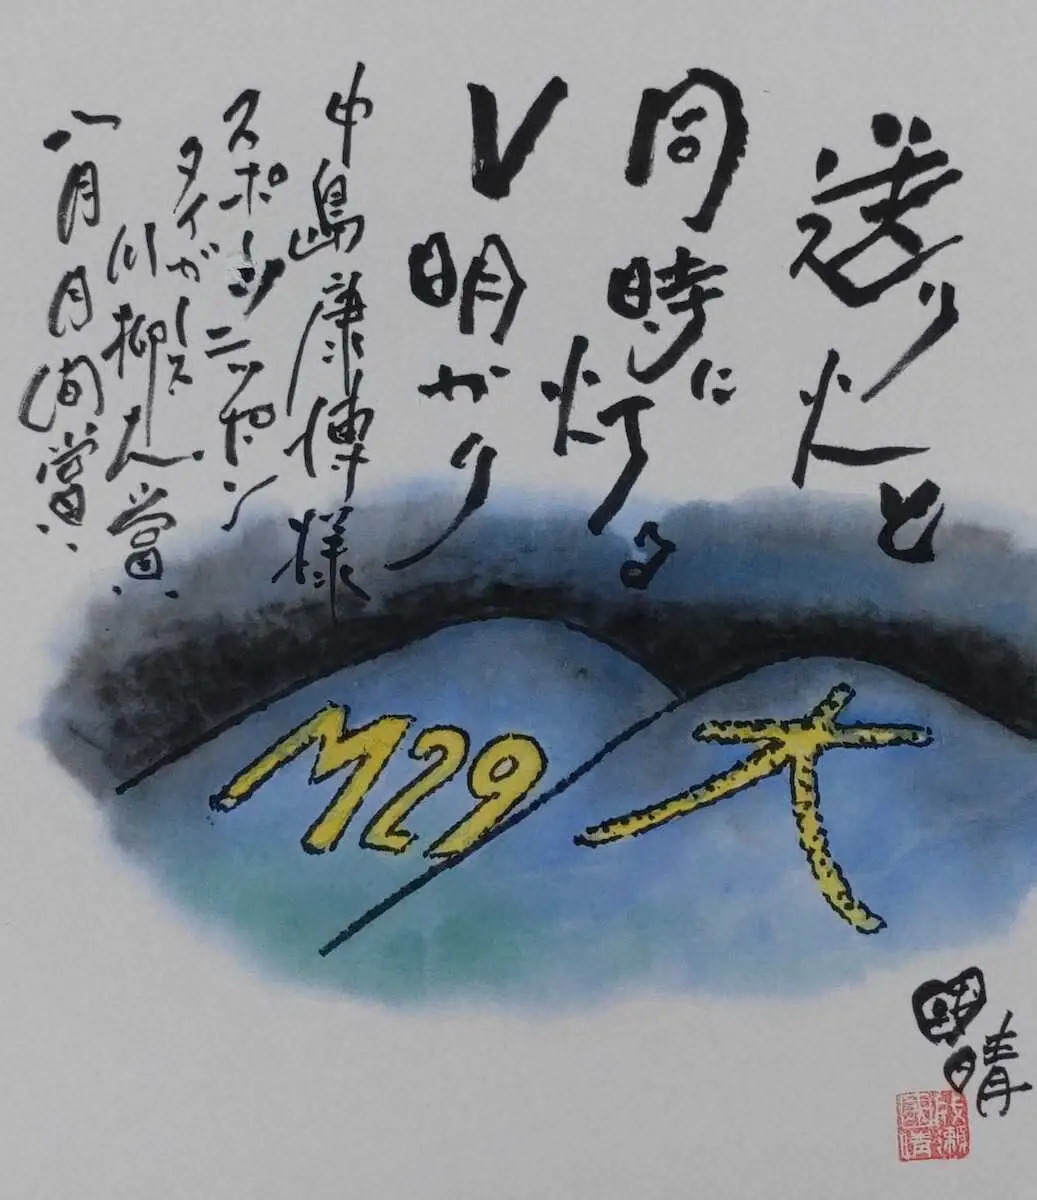 送り火と
同時に
灯る
V明かり
中島康博様
スポーツニッポン
タイガース
川柳大賞
八月月間賞
大
M29
國晴
成瀬國晴